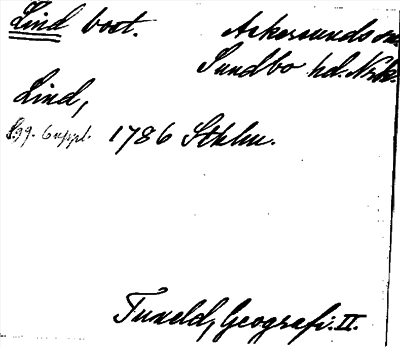 Lind bost. Askersunds sn.
Sundbo hd. Nrk.
Lind,
S. 99. Suppl. 1786 Sthlm.
Tuneld, Geografi. II.